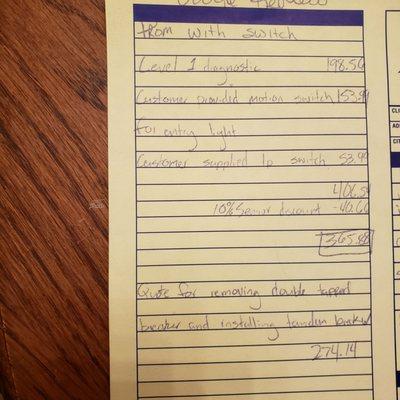 from with switch
Level 1 diagnostic 198.56
Customer provided motion switch 153.99
For entry light
Customer supplied 1p switch 53.99
406.54
10% Senior discount -40.66
365.88
Quote for removing double tapped
breaker and installing tandum breaker
274.14